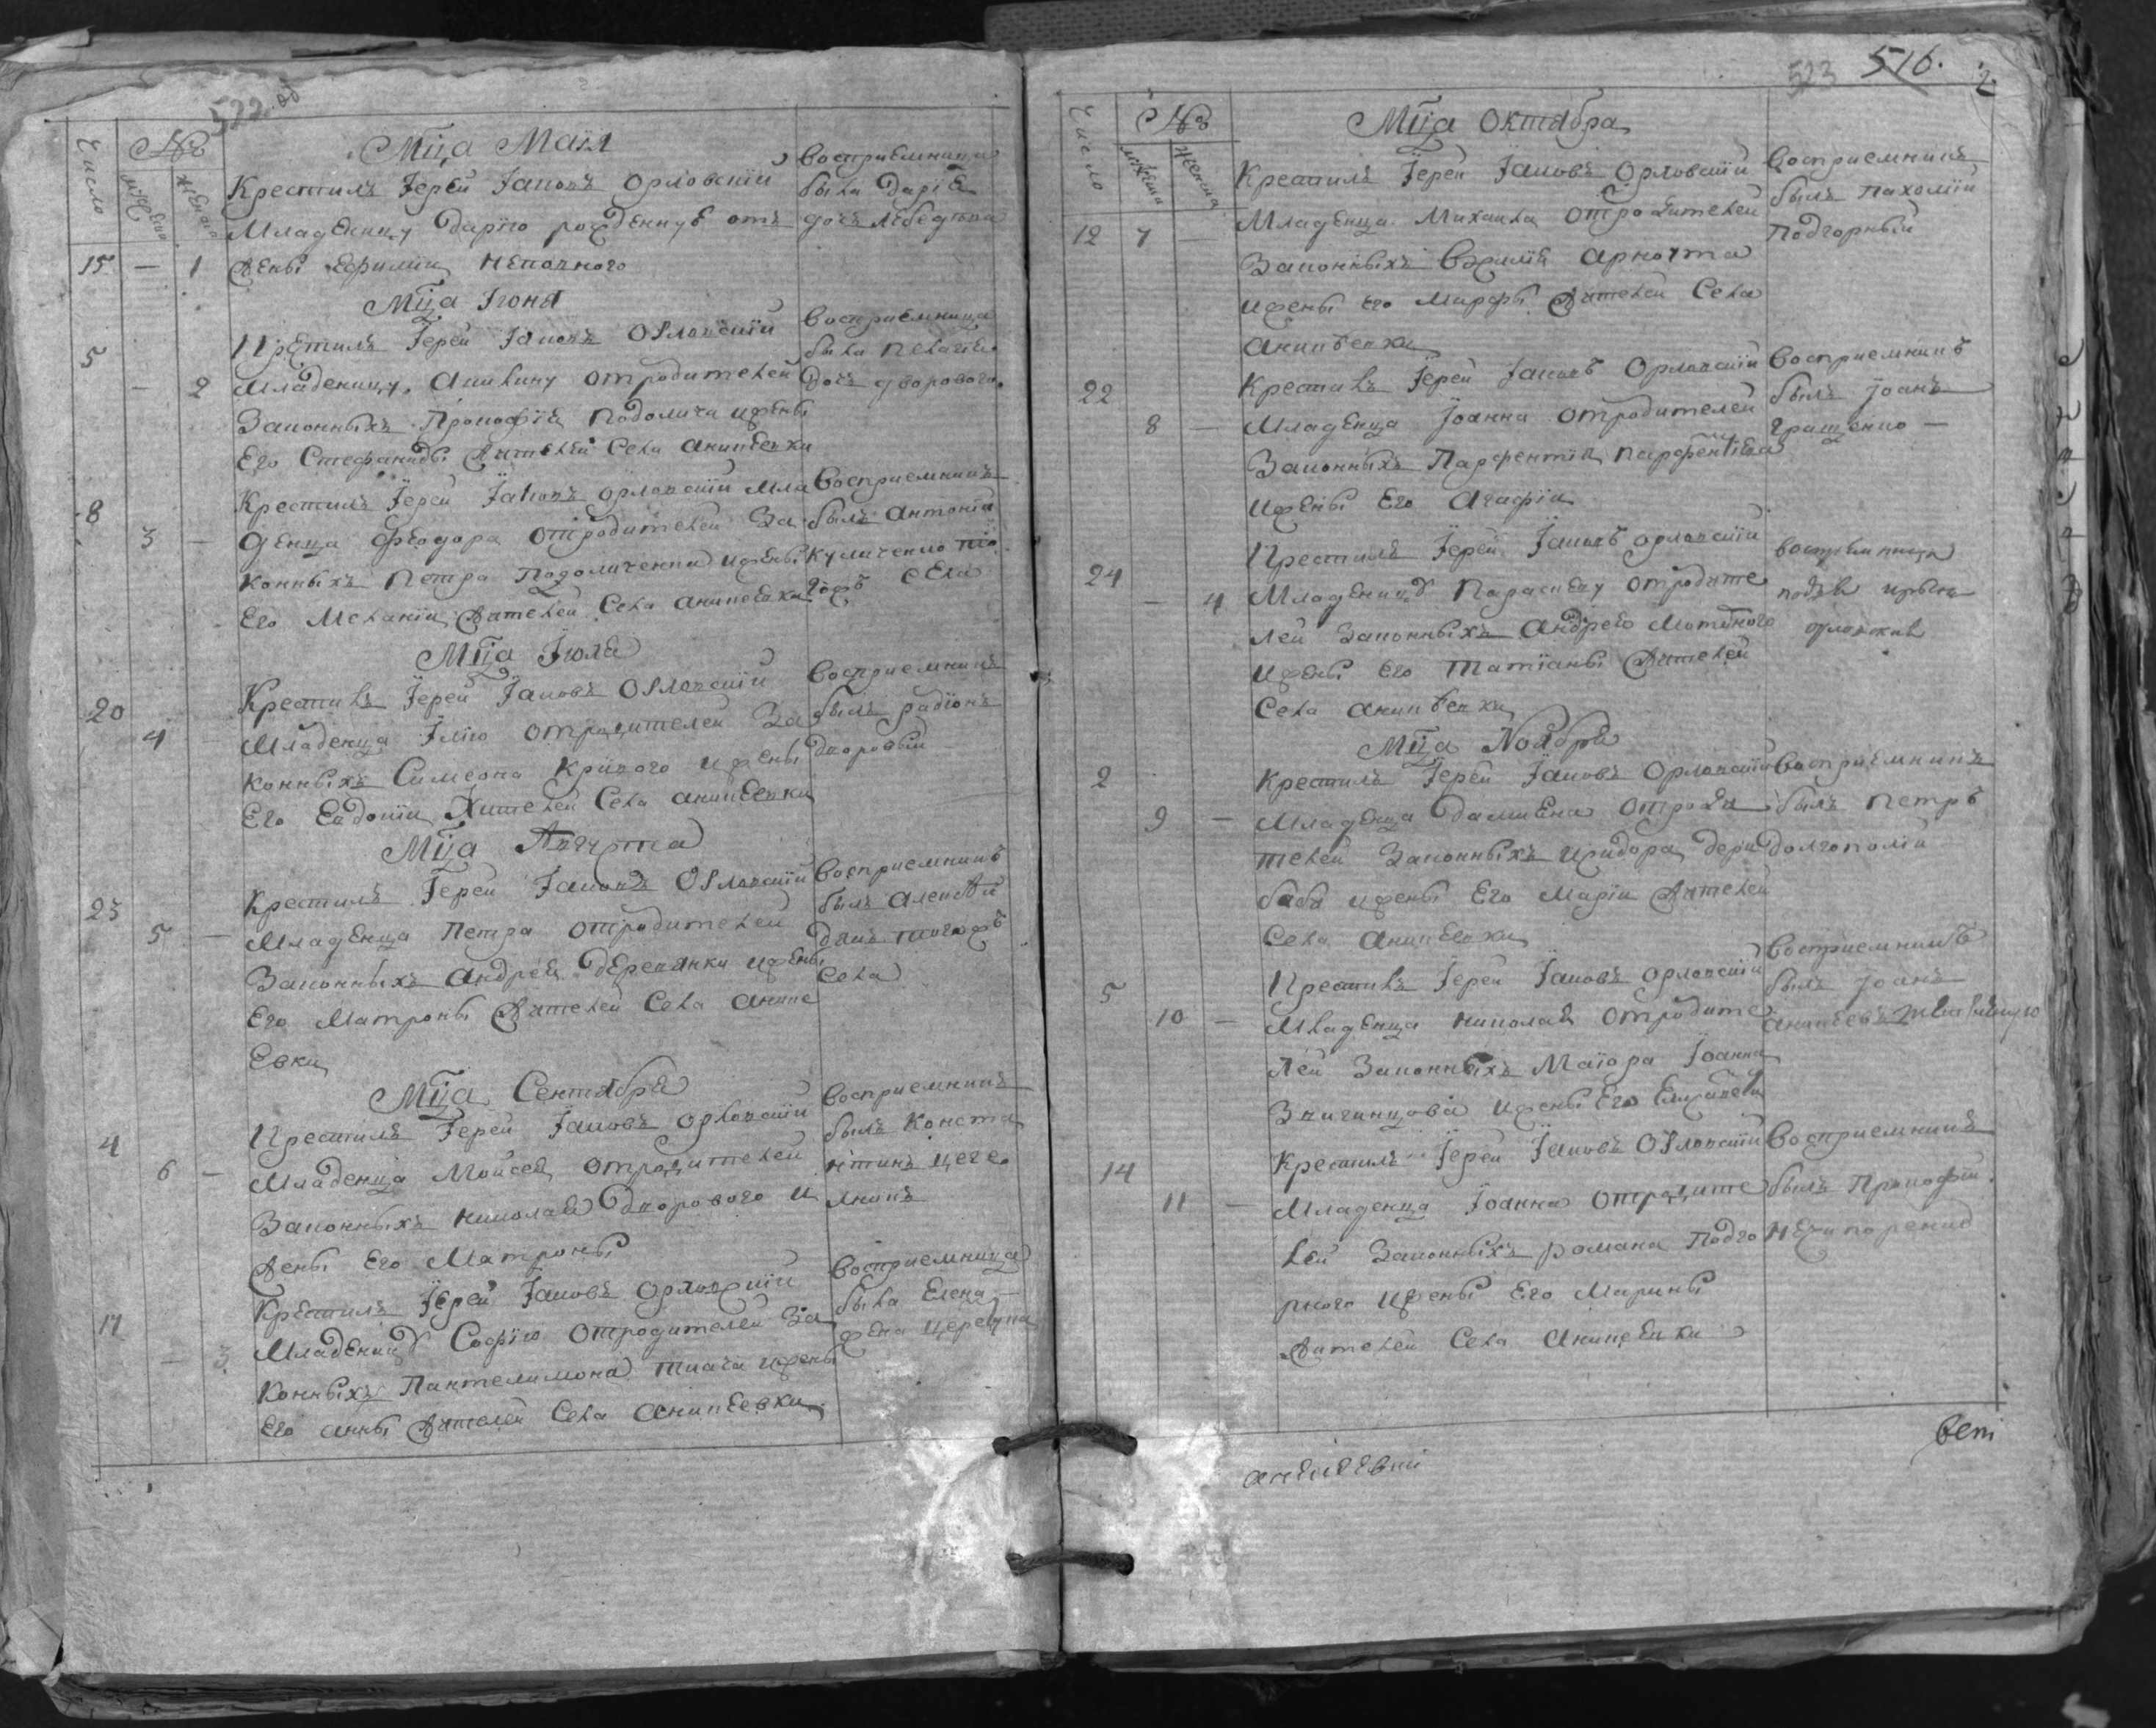 522 об
Число
№
Мца Маїя
15 — 1
Крестилъ Іерей Іаковъ Орловскїй
Младеницу Дарїю рожденнуѣ отъ
жены Ефимїи Неполного
восприемница
была Дарїя
дочь Лебедєва
Мца Іюня
5 — 2
Крестилъ Іерей Іаковъ Орловскїй
Младеницу Акилину отродителей
Законныхъ Прокофїя Подолича ижены
Его Стефаниды жителей Села Анипьевки
восприемница
была Пелагїя
дочь дворового
8 3 —
Крестилъ Іерей Іаковъ Орловскїй Мла
денца Феодора отродителей За
конныхъ Петра Подоличенка ижены
Его Меланїи жителей Села Анипьевки
восприемникъ
былъ Антонїй
Куличенко то
гожъ Села
Мца Іюля
20 4 —
Крестилъ Іерей Іаковъ Орловскїй
Младенца Ілїю отродителей За
конныхъ Симеона Кривого ижены
Его Евдокїи Жителей Села Анипьевки
восприемникъ
былъ Радїонъ
дворовый
Мца Августа
23 5 —
Крестилъ Іерей Іаковъ Орловскїй
Младенца Петра отродителей
Законныхъ Андрея Деревянки ижены
Его Матроны жителей Села Анипь
Евки
восприемникъ
былъ Алексѣй
дякъ тогожъ
Села
Мца Сентября
4 6 —
Крестилъ Іерей Іаковъ Орловскїй
Младенца Мойсея отродителей
Законныхъ Николая Дворового и
жены Его Матроны
восприемникъ
былъКонста
нтинъ
17 — 3
Крестилъ Іерей Іаковъ Орловскїй
Младеницѫ Софїю отродителей За
конныхъ Пантелимона Ткача ижены
Его Анны жителей Села Анипьевки
восприемница
была Елена
жена
523 516. 2
Число
№
мужеска
женска
Мца Октября
12 7 —
Крестилъ Іерей Іаковъ Орловскїй
Младенца Михаила отродителей
Законныхъ Василїя Арнаута
ижены Его Марфы жителей Села
Анипьевки
восприемникъ
былъ Пахомїй
Подгорный
22 8 —
Крестилъ Іерей Іаковъ Орловскїй
Младенца Іоанна отродителей
Законныхъ Парфентїя
ижены Его Агафїи
восприемникъ
былъ Іоанъ
Гращенко
24 — 4
Крестилъ Іерей Іаковъ Орловскїй
Младеницѫ Параскеву отродите
лей Законныхъ Андрею
ижены Его Татїаны жителей
Села Анипьевки
Мца Ноября
2 9 —
Крестилъ Іерей Іаковъ Орловскїй
Младенца Дамиена отроди
телей Законныхъ Дери
бабы ижены Его Марїи жителей
Села Анипьевки
восприемникъ
былъ Петръ
Долгополїй
5 10 —
Крестилъ Іерей Іаковъ Орловскїй
Младенца Николая отродите
лей Законныхъ Маїора Іоанна
Звигинцова ижены Его
восприемникъ
былъ Іоанъ
14 11 —
Крестилъ Іерей Іаковъ Орловскїй
Младенца Іоанна отродите
лей Законныхъ Романа Подго
рного ижены Его Марины
жителей Села Анипьевки
восприемникъ
былъ Прокофїй
Нечипоренко